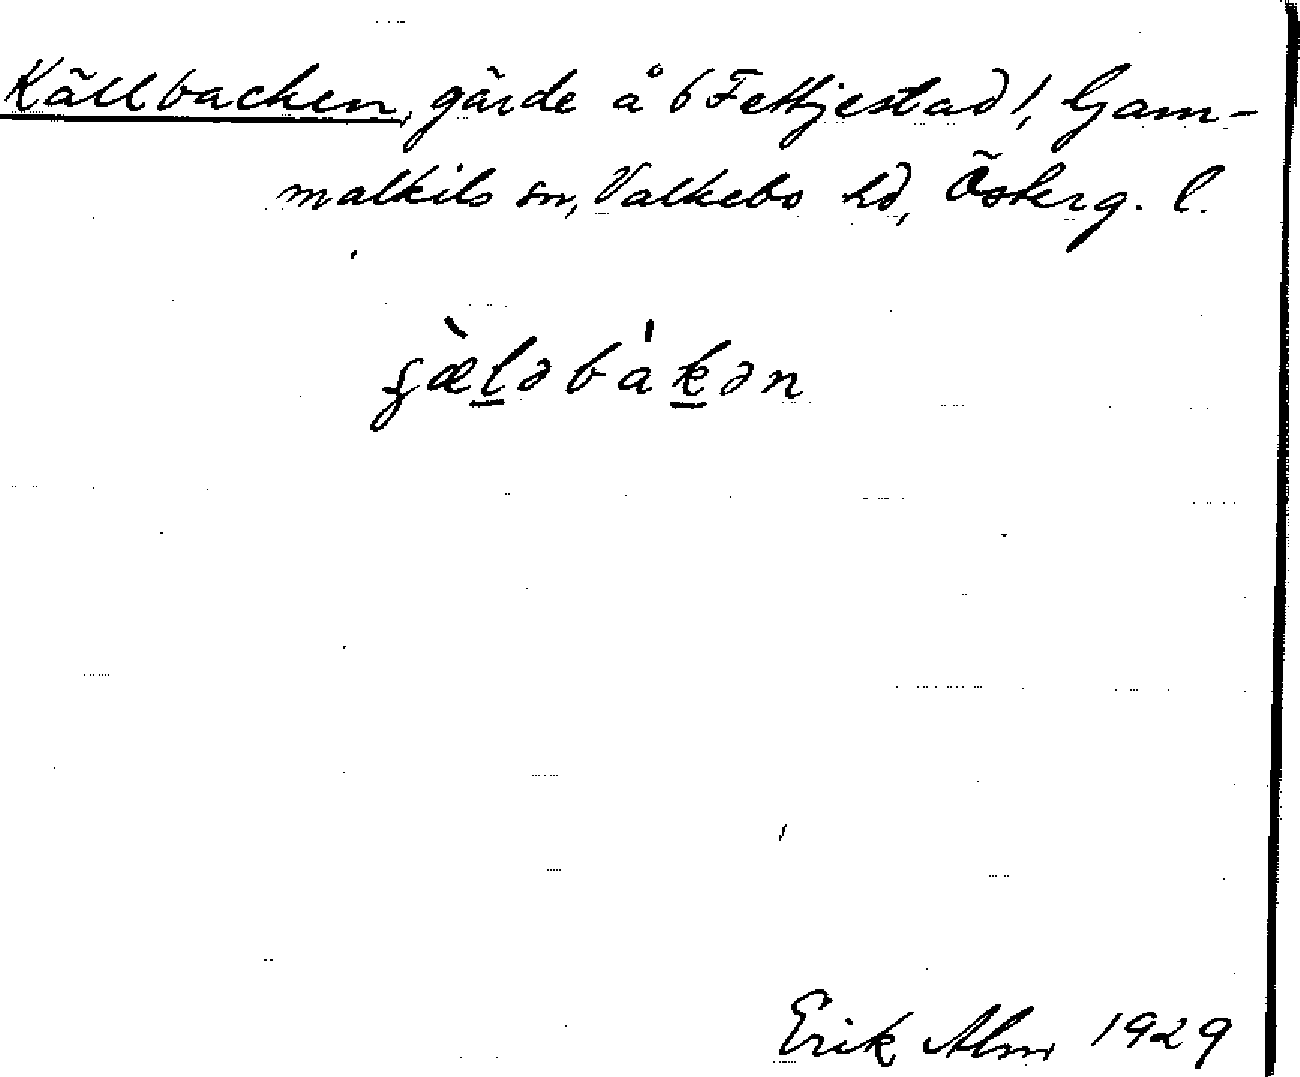 Källbacken, gärde å 6 Fettjestad !, Gam-
malkils sn, Valkebo hd, Österg. l.
Erik Alm 1929